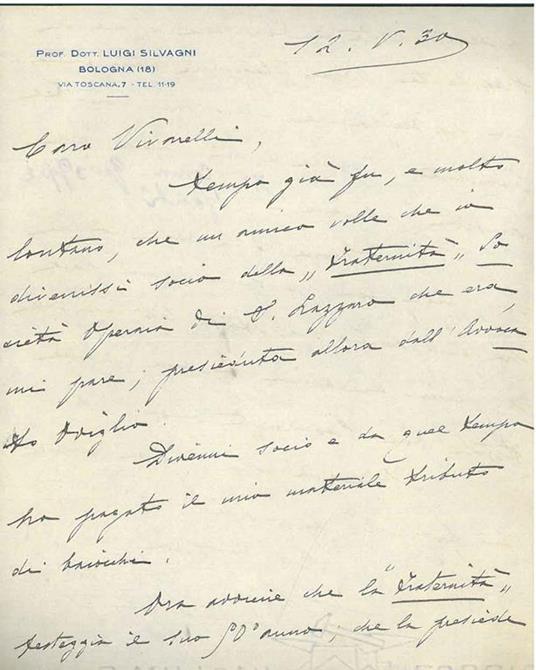 PROF. DOTT. LUIGI SILVAGNI
BOLOGNA (18)
VIA TOSCANA, 7 - TEL. 11-19
12. V. 30
Caro Vivarelli,
tempo già fu, e molto
lontano, che un amico volle che io
divenissi socio della „Fraternità„ So
cietà Operaia di S. Lazzaro che era,
mi pare, presieduta allora dall'Avvoca
to Oviglio.
Divenni socio e da quel tempo
ho pagato il mio materiale tributo
di baiocchi.
Ora avviene che la "Fraternità„
festeggia il suo 50° anno, che la presiede